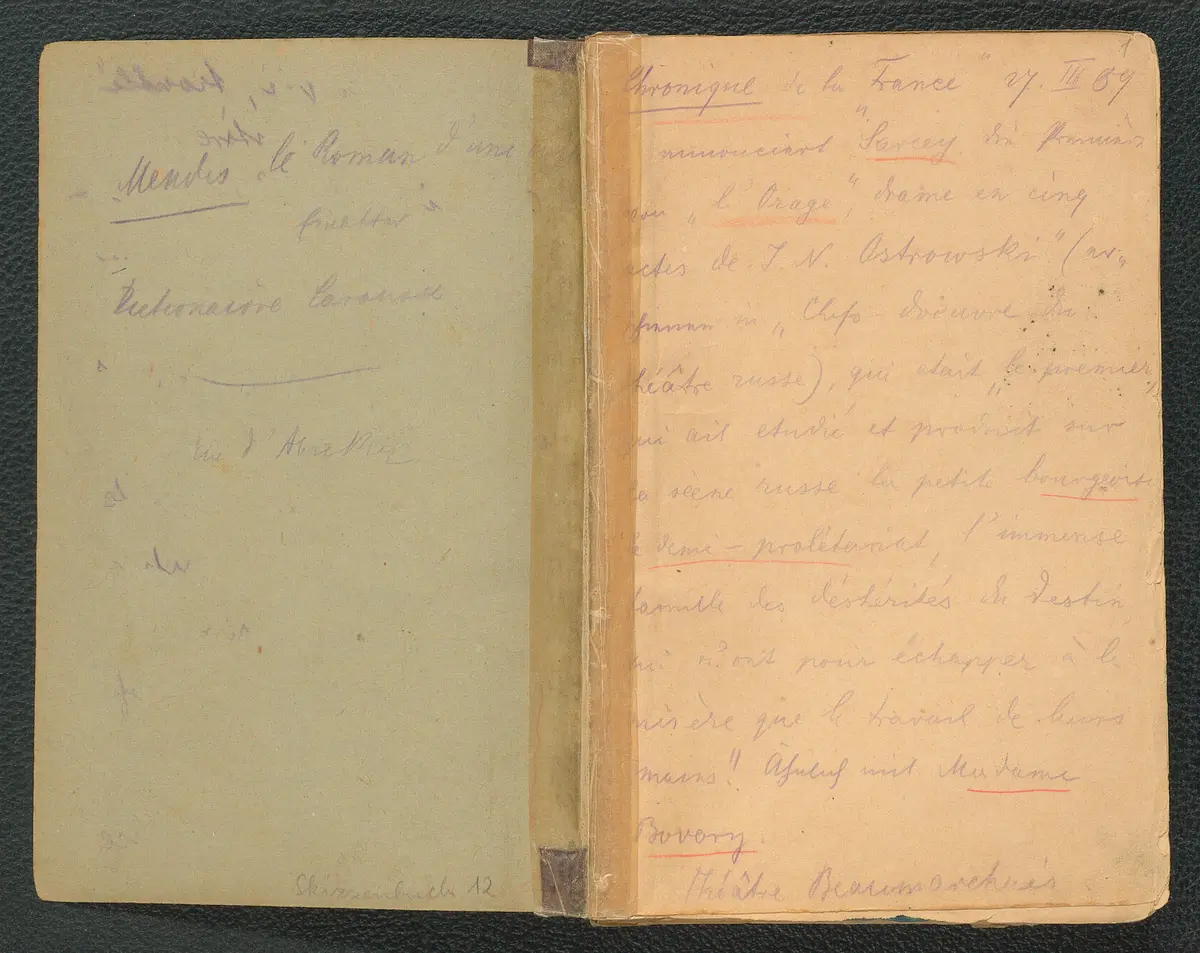 Mendès le Roman d'une
Dictionaire Larousse
rue d'
Skizzenbuch 12
1
Chronique de la France" 27. III 89
annonciert "Sarcey die Première
von "l'Orage", drame en cinq
actes de I. N. Ostrowski" (er-
schienen in "Chefs-d'oeuvre du
théâtre russe), qui etait "le premier,
qui ait etudié et produit sur
la scène russe la petite bourgeoisie
le demi-prolétariat, l'immense
famille des déshérités du destin
qui n'ont pour échapper à la
misère que le travail de leurs
mains". Ähnlich mit Madame
Bovary.
Théâtre Beaumarchais